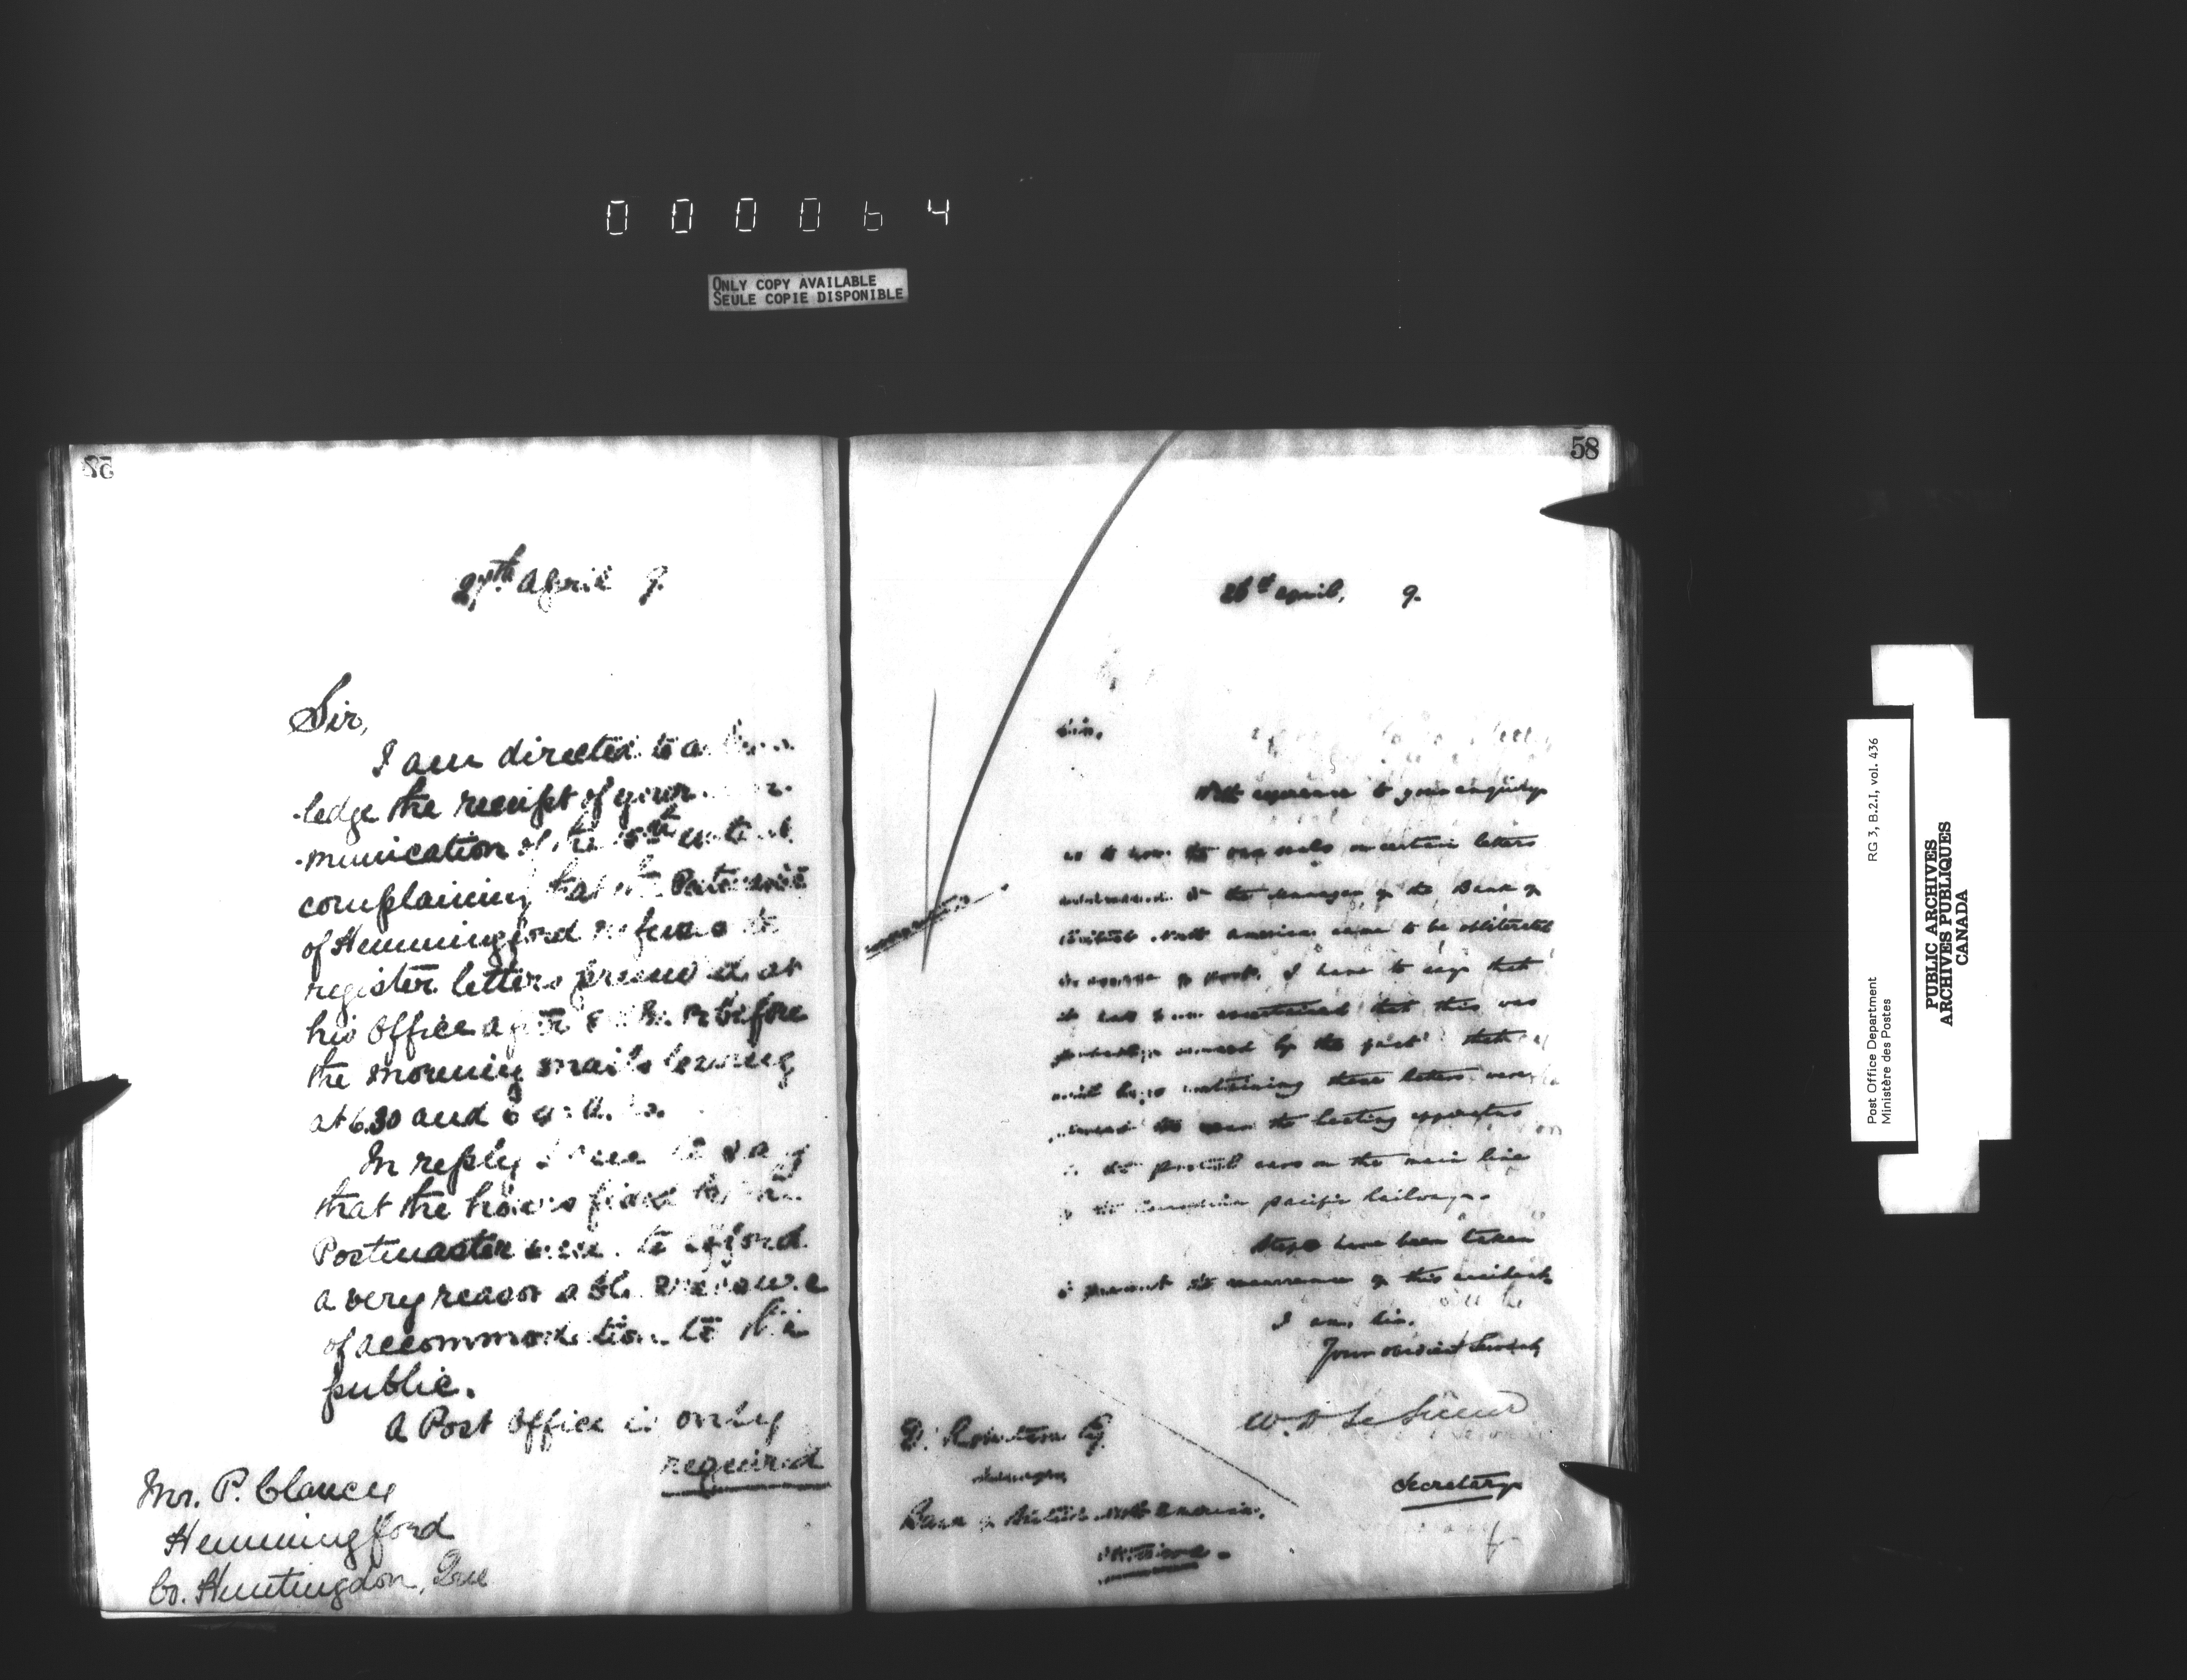 000064
ONLY COPY AVAILABLE
SEULE COPIE DISPONIBLE
58
27th April 9.
Sir,
I am directed to
-ledge the receipt of your
-munication of the
complaining that the Postmaster
of Hemmingford refuses to
register letters presented at
his Office after or before
the morning mails leaving
at 6.30 and
In reply I have to say
that the hours fixed by the
Postmaster seem to afford
a very reasonable measure
of accommodation to the
public.
A Post Office is only
required
Mr. P. Clancy
Hemmingford
Co. Huntingdon, Que
58
26th April, 9.
Sir,
With reference to your inquiry
as to how the wax seals on certain letters
addressed to the Manager of the Bank of
British North America came to be obliterated
in course of post, I have to say that
it has been ascertained that this was
probably caused by the fact that
mail bags containing these letters were
placed too near the heating apparatus
in the postal cars on the main line
of the Canadian Pacific Railway.
Steps have been taken
to prevent the recurrence of this accident.
I am, Sir,
Your obedient Servant,
W. D. LeSueur
Secretary
D. Robertson Esq
Manager
Bank of British North America,
RG 3, B.2.I, vol. 436
Post Office Department
Ministère des Postes
PUBLIC ARCHIVES
ARCHIVES PUBLIQUES
CANADA